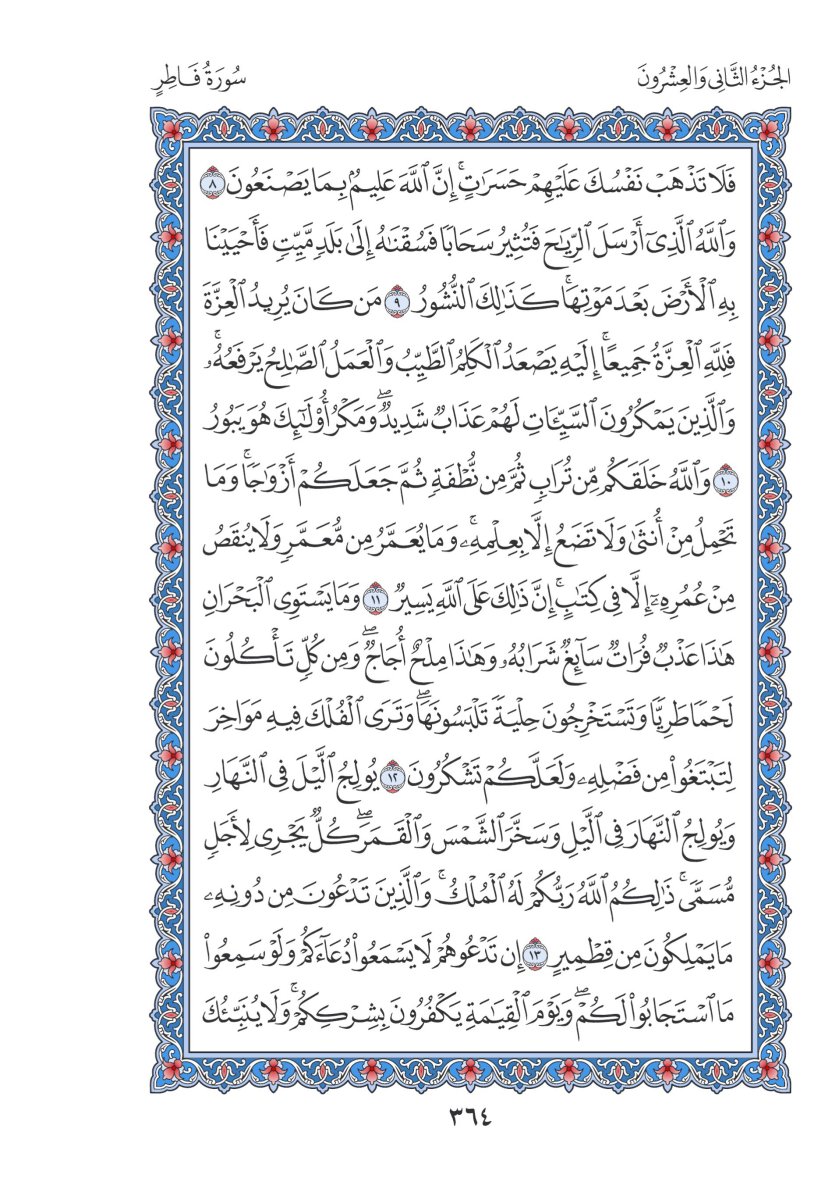 الجُزْءُ الثَّانِى وَالعِشْرُونَ
سُورَةُ فَاطِرٍ
فَلَا تَذْهَبْ نَفْسُكَ عَلَيْهِمْ حَسَرَٰتٍۚ إِنَّ ٱللَّهَ عَلِيمٌۢ بِمَا يَصْنَعُونَ ٨
وَٱللَّهُ ٱلَّذِىٓ أَرْسَلَ ٱلرِّيَٰحَ فَتُثِيرُ سَحَابًا فَسُقْنَٰهُ إِلَىٰ بَلَدٍ مَّيِّتٍ فَأَحْيَيْنَا
بِهِ ٱلْأَرْضَ بَعْدَ مَوْتِهَاۚ كَذَٰلِكَ ٱلنُّشُورُ ٩ مَن كَانَ يُرِيدُ ٱلْعِزَّةَ
فَلِلَّهِ ٱلْعِزَّةُ جَمِيعًاۚ إِلَيْهِ يَصْعَدُ ٱلْكَلِمُ ٱلطَّيِّبُ وَٱلْعَمَلُ ٱلصَّٰلِحُ يَرْفَعُهُۥۚ
وَٱلَّذِينَ يَمْكُرُونَ ٱلسَّيِّـَٔاتِ لَهُمْ عَذَابٌ شَدِيدٌۖ وَمَكْرُ أُو۟لَٰٓئِكَ هُوَ يَبُورُ
١٠ وَٱللَّهُ خَلَقَكُم مِّن تُرَابٍ ثُمَّ مِن نُّطْفَةٍ ثُمَّ جَعَلَكُمْ أَزْوَٰجًاۚ وَمَا
تَحْمِلُ مِنْ أُنثَىٰ وَلَا تَضَعُ إِلَّا بِعِلْمِهِۦۚ وَمَا يُعَمَّرُ مِن مُّعَمَّرٍ وَلَا يُنقَصُ
مِنْ عُمُرِهِۦٓ إِلَّا فِى كِتَٰبٍۚ إِنَّ ذَٰلِكَ عَلَى ٱللَّهِ يَسِيرٌ ١١ وَمَا يَسْتَوِى ٱلْبَحْرَانِ
هَٰذَا عَذْبٌ فُرَاتٌ سَآئِغٌ شَرَابُهُۥ وَهَٰذَا مِلْحٌ أُجَاجٌۖ وَمِن كُلٍّ تَأْكُلُونَ
لَحْمًا طَرِيًّا وَتَسْتَخْرِجُونَ حِلْيَةً تَلْبَسُونَهَاۖ وَتَرَى ٱلْفُلْكَ فِيهِ مَوَاخِرَ
لِتَبْتَغُوا۟ مِن فَضْلِهِۦ وَلَعَلَّكُمْ تَشْكُرُونَ ١٢ يُولِجُ ٱلَّيْلَ فِى ٱلنَّهَارِ
وَيُولِجُ ٱلنَّهَارَ فِى ٱلَّيْلِ وَسَخَّرَ ٱلشَّمْسَ وَٱلْقَمَرَۖ كُلٌّ يَجْرِى لِأَجَلٍ
مُّسَمًّىۚ ذَٰلِكُمُ ٱللَّهُ رَبُّكُمْ لَهُ ٱلْمُلْكُۚ وَٱلَّذِينَ تَدْعُونَ مِن دُونِهِۦ
مَا يَمْلِكُونَ مِن قِطْمِيرٍ ١٣ إِن تَدْعُوهُمْ لَا يَسْمَعُوا۟ دُعَآءَكُمْ وَلَوْ سَمِعُوا۟
مَا ٱسْتَجَابُوا۟ لَكُمْۖ وَيَوْمَ ٱلْقِيَٰمَةِ يَكْفُرُونَ بِشِرْكِكُمْۚ وَلَا يُنَبِّئُكَ
٣٦٤